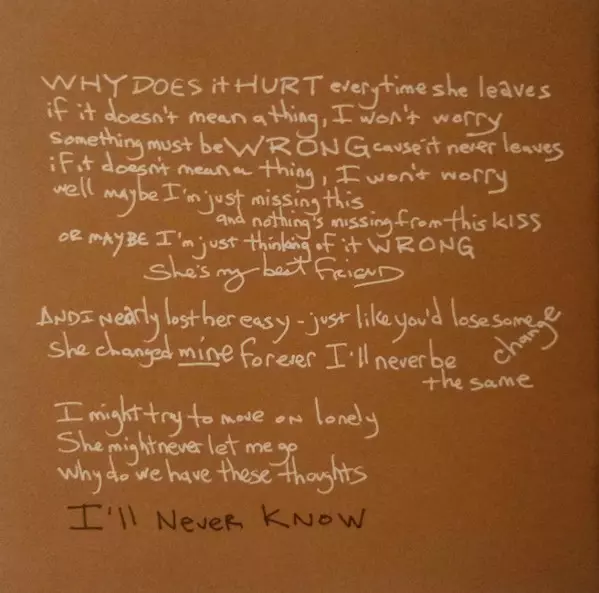 WHY DOES it HURT everytime she leaves
if it doesn't mean a thing, I won't worry
something must be WRONG cause it never leaves
if it doesn't mean a thing, I won't worry
well maybe I'm just missing this
and nothing's missing from this KISS
OR MAYBE I'm just thinking of it WRONG
She's my best FRIEND
AND I Nearly lost her easy - just like you'd lose some change
She changed mine forever I'll never be
the same
I might try to move on lonely
She might never let me go
Why do we have these thoughts
I'll Never KNOW